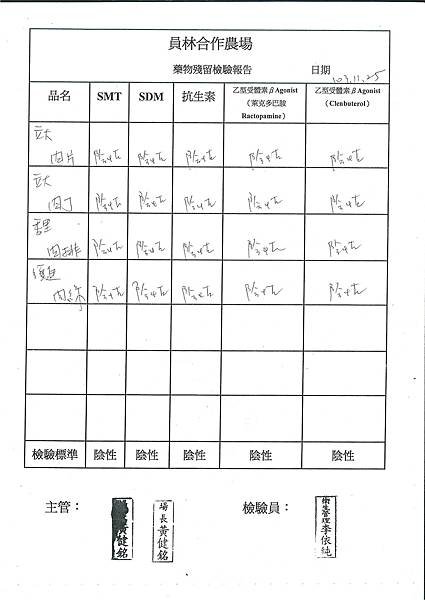 員林合作農場
藥物殘留檢驗報告 日期 103.11.25
品名 SMT SDM 抗生素 乙型受體素βAgonist（萊克多巴胺 Ractopamine） 乙型受體素βAgonist（Clenbuterol）
肉片 陰性 陰性 陰性 陰性 陰性
肉丁 陰性 陰性 陰性 陰性 陰性
里
肉排 陰性 陰性 陰性 陰性 陰性
肉絲 陰性 陰性 陰性 陰性 陰性
檢驗標準 陰性 陰性 陰性 陰性 陰性
主管： 黃健銘 場長黃健銘 檢驗員： 衛生管理李依純